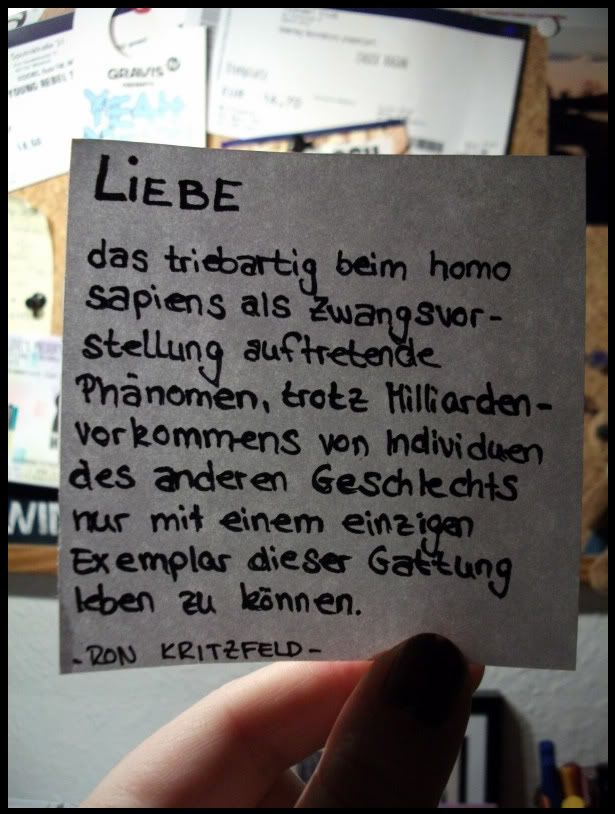 GRAVIS
YEAH
YOUNG REBEL
LIEBE
das triebartig beim homo
sapiens als Zwangsvor-
stellung auftretende
Phänomen, trotz Milliarden-
vorkommens von Individuen
des anderen Geschlechts
nur mit einem einzigen
Exemplar dieser Gattung
leben zu können.
- RON KRITZFELD -